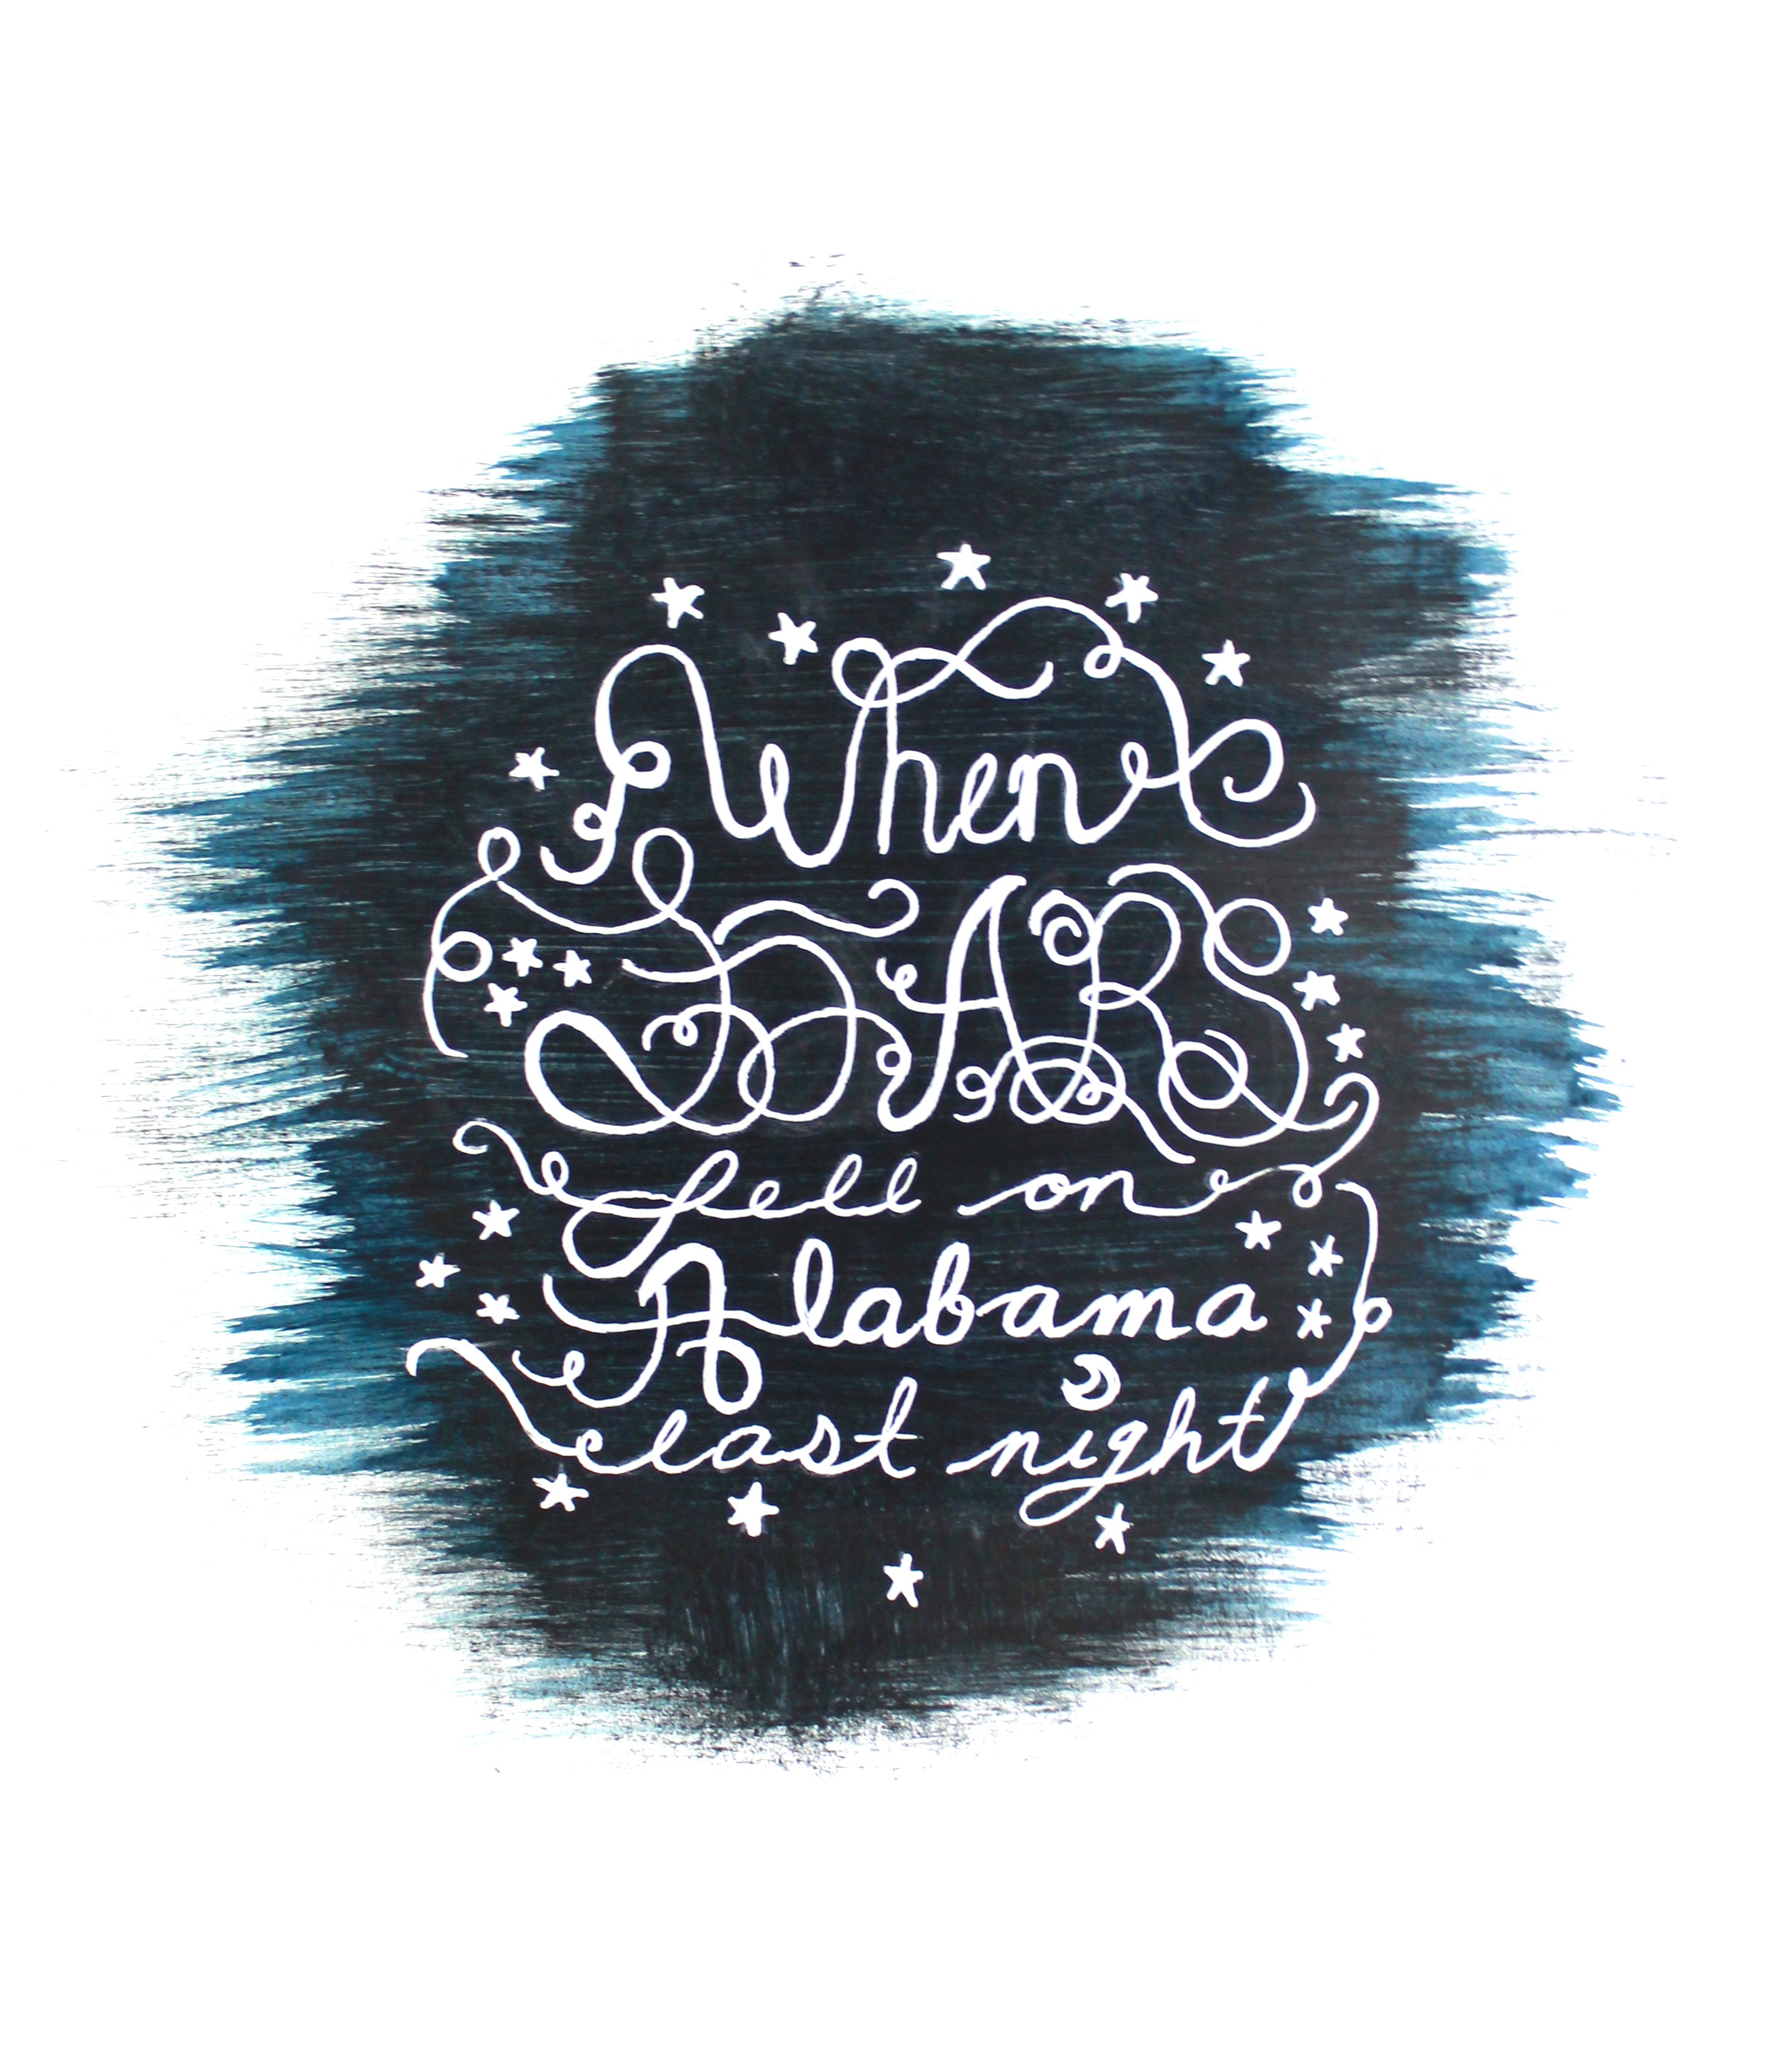 When
STARS
fell on
Alabama
last night